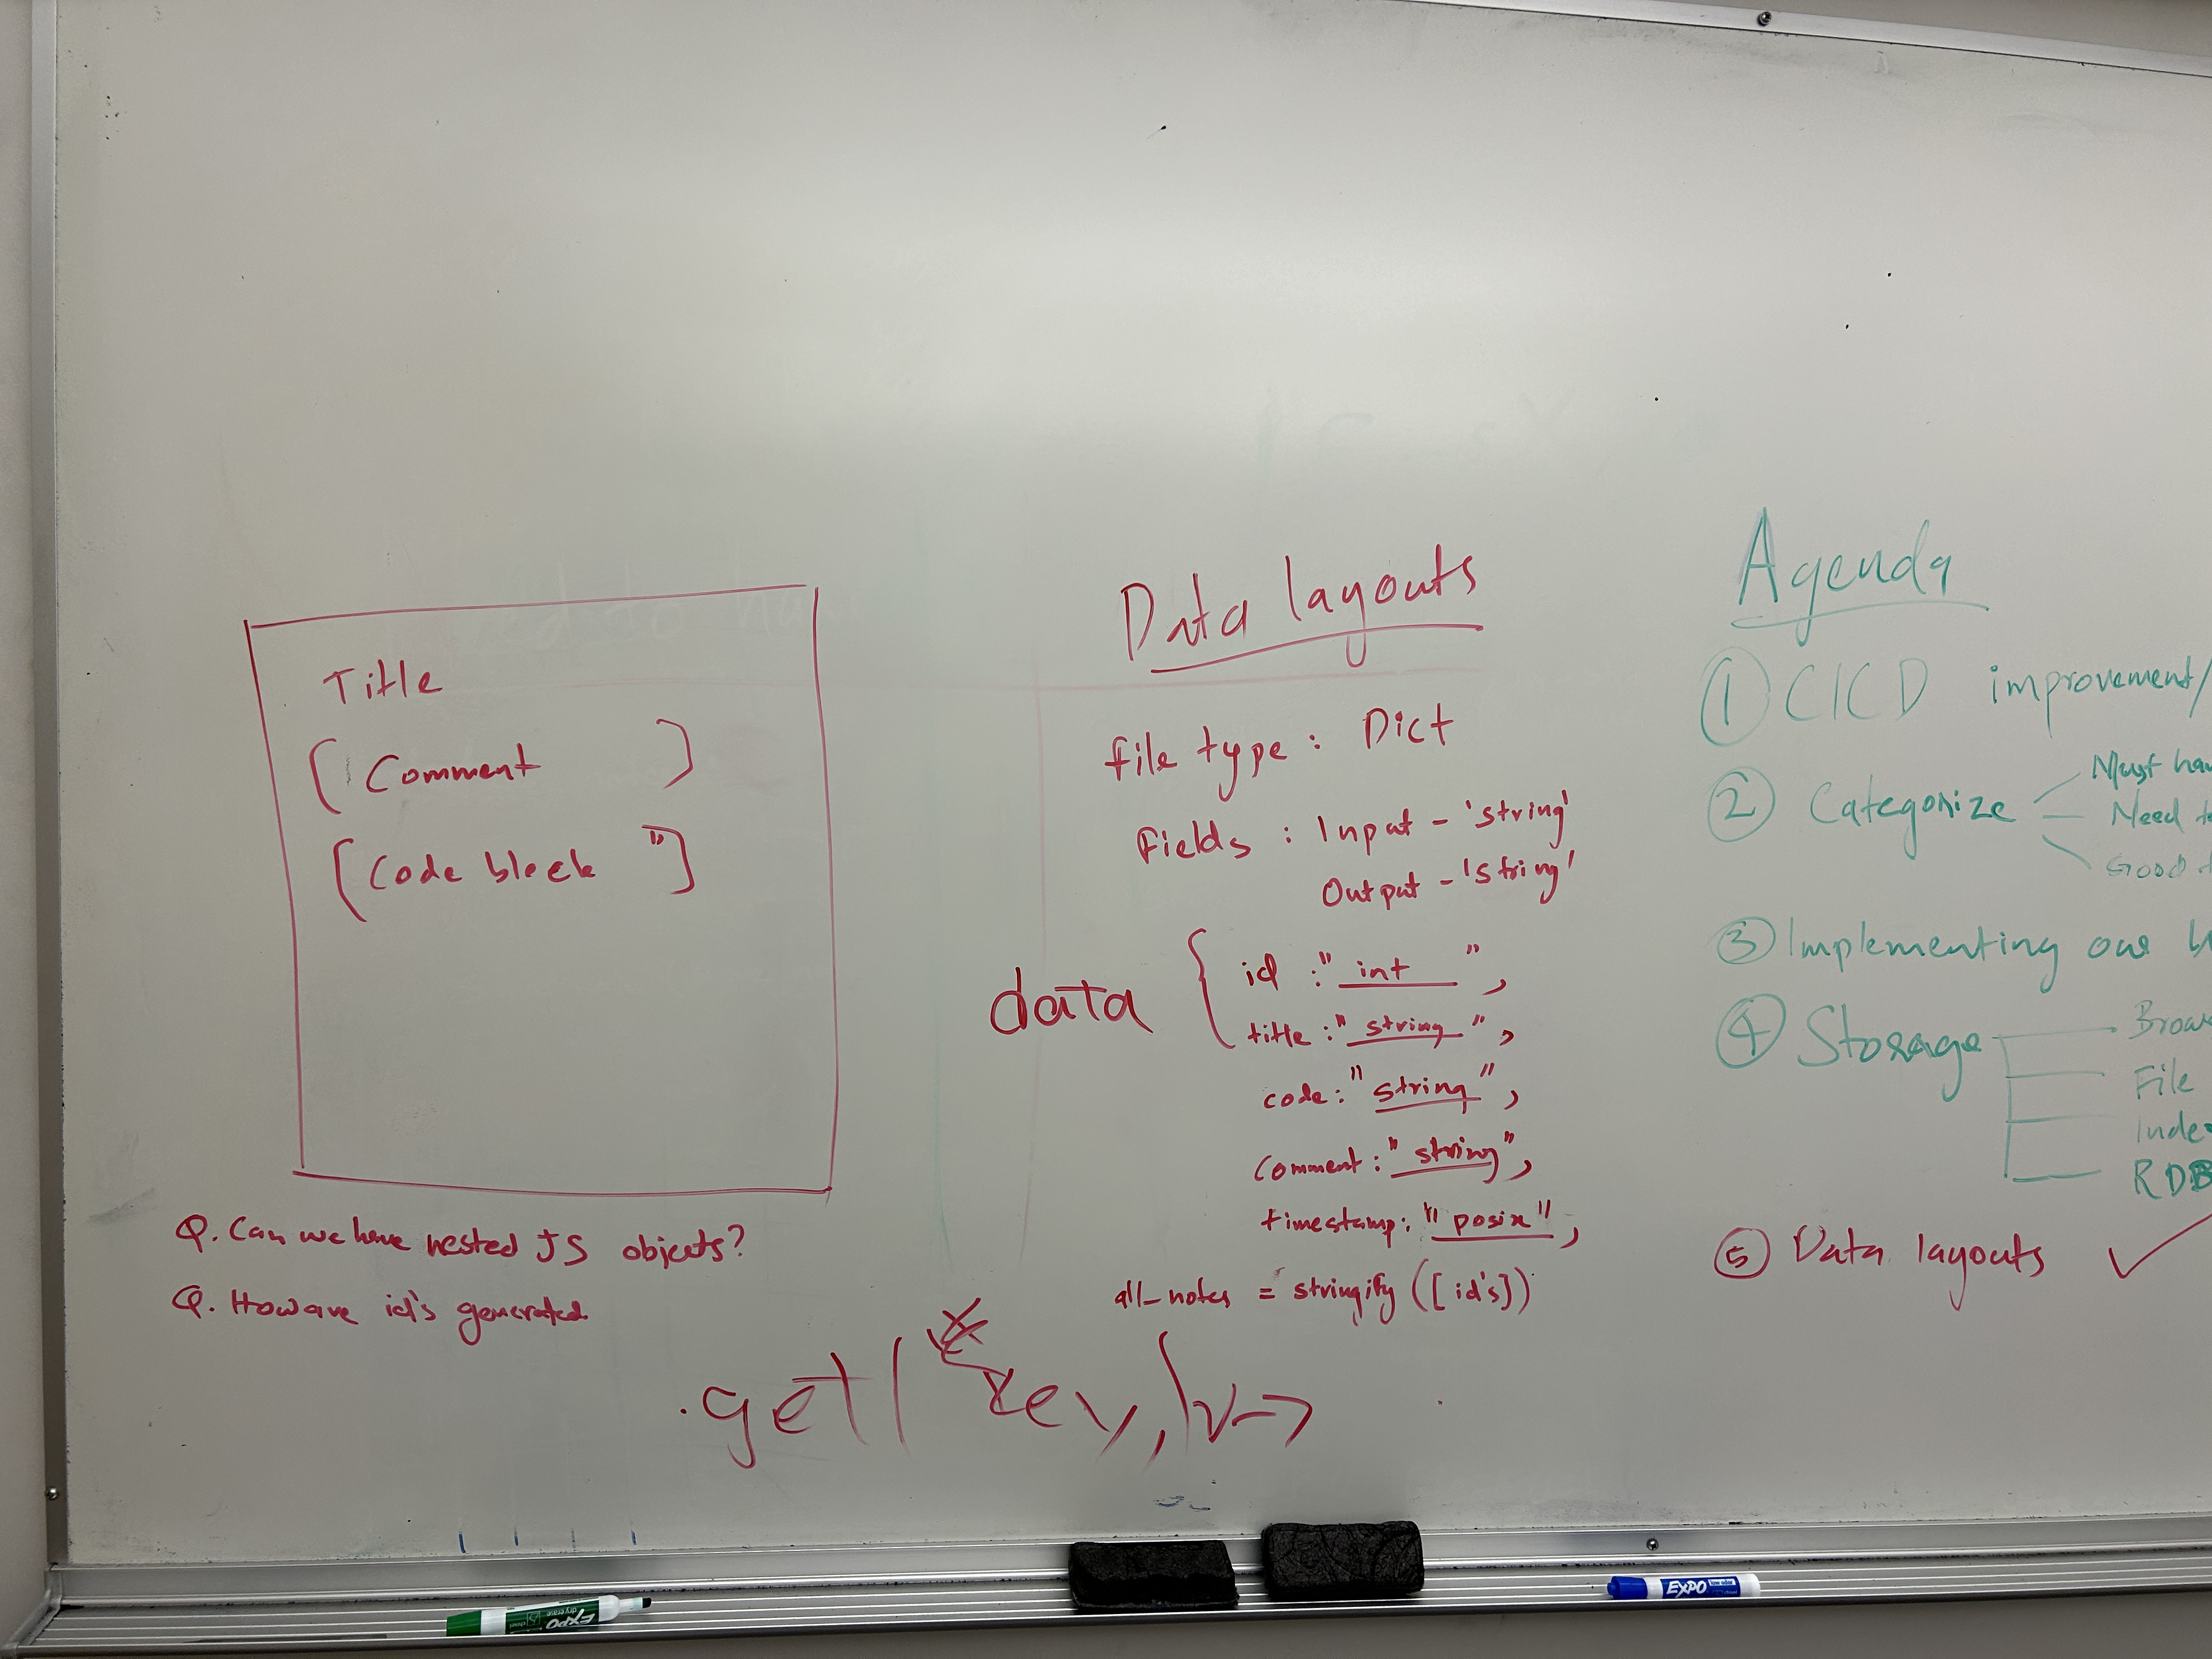 Title
[ Comment ]
[ Code block " ]
Q. Can we have nested JS objects?
Q. How are id's generated
Data layouts
file type : Dict
fields : Input - 'string'
Output - 'string'
data { id : " int " ,
title : " string " ,
code : " string " ,
comment : " string " ,
timestamp : " posix " ,
all_notes = stringify ([ id's ])
.get( key, v→
Agenda
① CICD improvement/
② Categorize
Must hav
Need t
Good t
③ Implementing our
④ Storage
Brows
File
Inde
RDB
⑤ Data layouts ✓
EXPO
EXPO